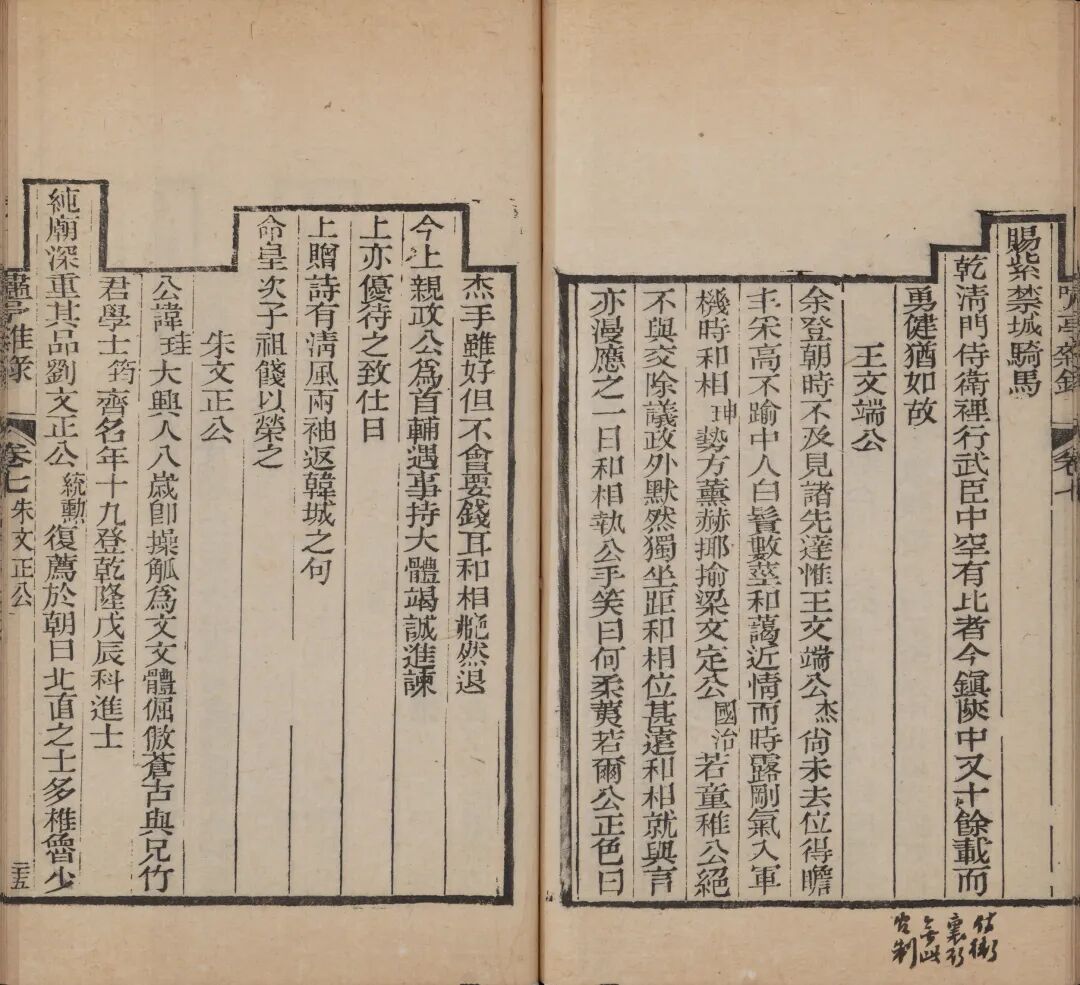 嘯亭雜錄 卷七
賜紫禁城騎馬
乾清門侍衛裡行武臣中罕有比者今鎮陝中又十餘載而
勇健猶如故
王文端公
余登朝時不及見諸先達惟王文端公杰尚未去位得瞻
丰采高不踰中人白鬚數莖和藹近情而時露剛氣入軍
機時和相珅勢方薰赫揶揄梁文定公國治若童稚公絕
不與交除議政外默然獨坐距和相位甚遠和相就與言
亦漫應之一日和相執公手笑曰何柔荑若爾公正色曰
侍衛
裏行
無此
官制
杰手雖好但不會要錢耳和相赧然退
今上親政公爲首輔遇事持大體竭誠進諫
上亦優待之致仕日
上贈詩有清風兩袖返韓城之句
命皇次子祖餞以榮之
朱文正公
公諱珪大興人八歲卽操觚爲文文體倔傲蒼古與兄竹
君學士筠齊名年十九登乾隆戊辰科進士
純廟深重其品劉文正公統勳復薦於朝曰北直之士多椎魯少
嘯亭雜錄 卷七 朱文正公